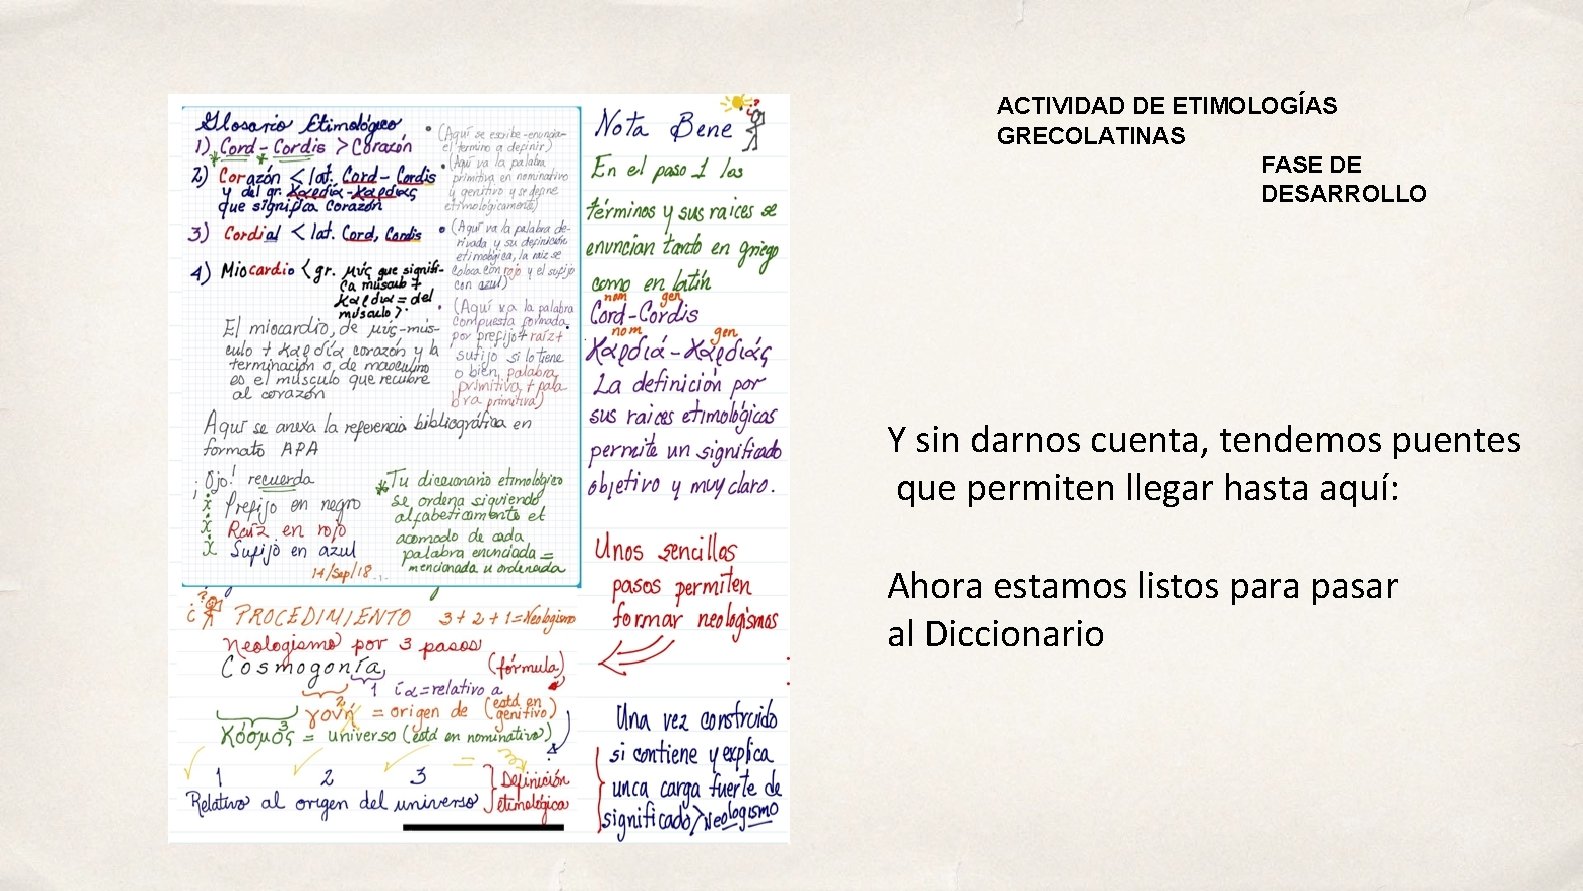 ACTIVIDAD DE ETIMOLOGÍAS
GRECOLATINAS
FASE DE
DESARROLLO
Glosario Etimológico
1) Cord - Cordis > Corazón
(Aquí se escribe-enuncia-
el término a definir)
2) Corazón < lat. Cord - Cordis
y del gr. Καρδία-Καρδίας
que significa corazón
(Aquí va la palabra
primitiva en nominativo
y genitivo y se define
etimológicamente)
3) Cordial < lat. Cord, Cordis
(Aquí va la palabra de-
rivada y su definición
etimológica, la raíz se
coloca con rojo y el sufijo
con azul)
4) Miocardio < gr. μύς que signifi-
ca músculo +
Καρδια = del
músculo >
(Aquí va la palabra
compuesta formada
por prefijo + raíz +
sufijo si lo tiene
o bien, palabra
primitiva + pala
bra primitiva)
El miocardio, de μύς-mús-
culo + καρδία corazón y la
terminación o, de masculino
es el músculo que recubre
al corazón
Aquí se anexa la referencia bibliográfica en
formato APA
¡Ojo! recuerda
Prefijo en negro
Raíz en rojo
Sufijo en azul
14/sep/18
Tu diccionario etimológico
se ordena siguiendo
alfabéticamente el
acomodo de cada
palabra enunciada =
mencionada u ordenada
Nota Bene
En el paso 1 los
términos y sus raices se
enuncian tanto en griego
como en latín
nom gen
Cord-Cordis
nom gen
Καρδιά-Καρδιάς
La definición por
sus raices etimológicas
permite un significado
objetivo y muy claro.
Unos sencillos
pasos permiten
formar neologismos
Una vez construido
si contiene y explica
unca carga fuerte de
significado > Neologismo
PROCEDIMIENTO 3+2+1=Neologismo
Neologismo por 3 pasos
Cosmogonía, (fórmula)
1 ία=relativo a
2 γονή = origen de (está en
genitivo)
3 Κόσμος = universo (está en nominativo)
1 2 3 =
Relativo al origen del universo
Definición
etimológica
Y sin darnos cuenta, tendemos puentes
que permiten llegar hasta aquí:
Ahora estamos listos para pasar
al Diccionario